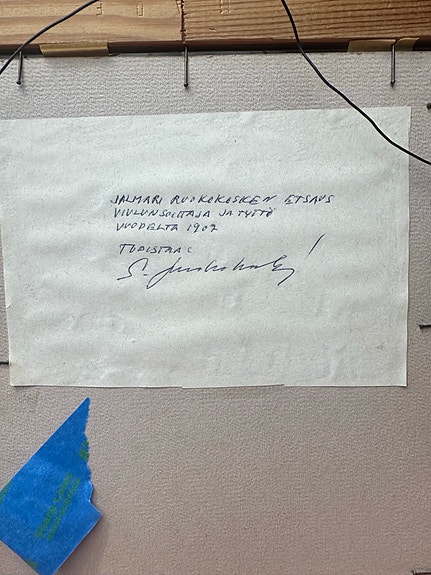 JALMARI RUOKOKOSKEN ETSAUS
VIULUNSOITTAJA JA TYTTÖ
VUODELTA 1902
TODISTAA:
S.